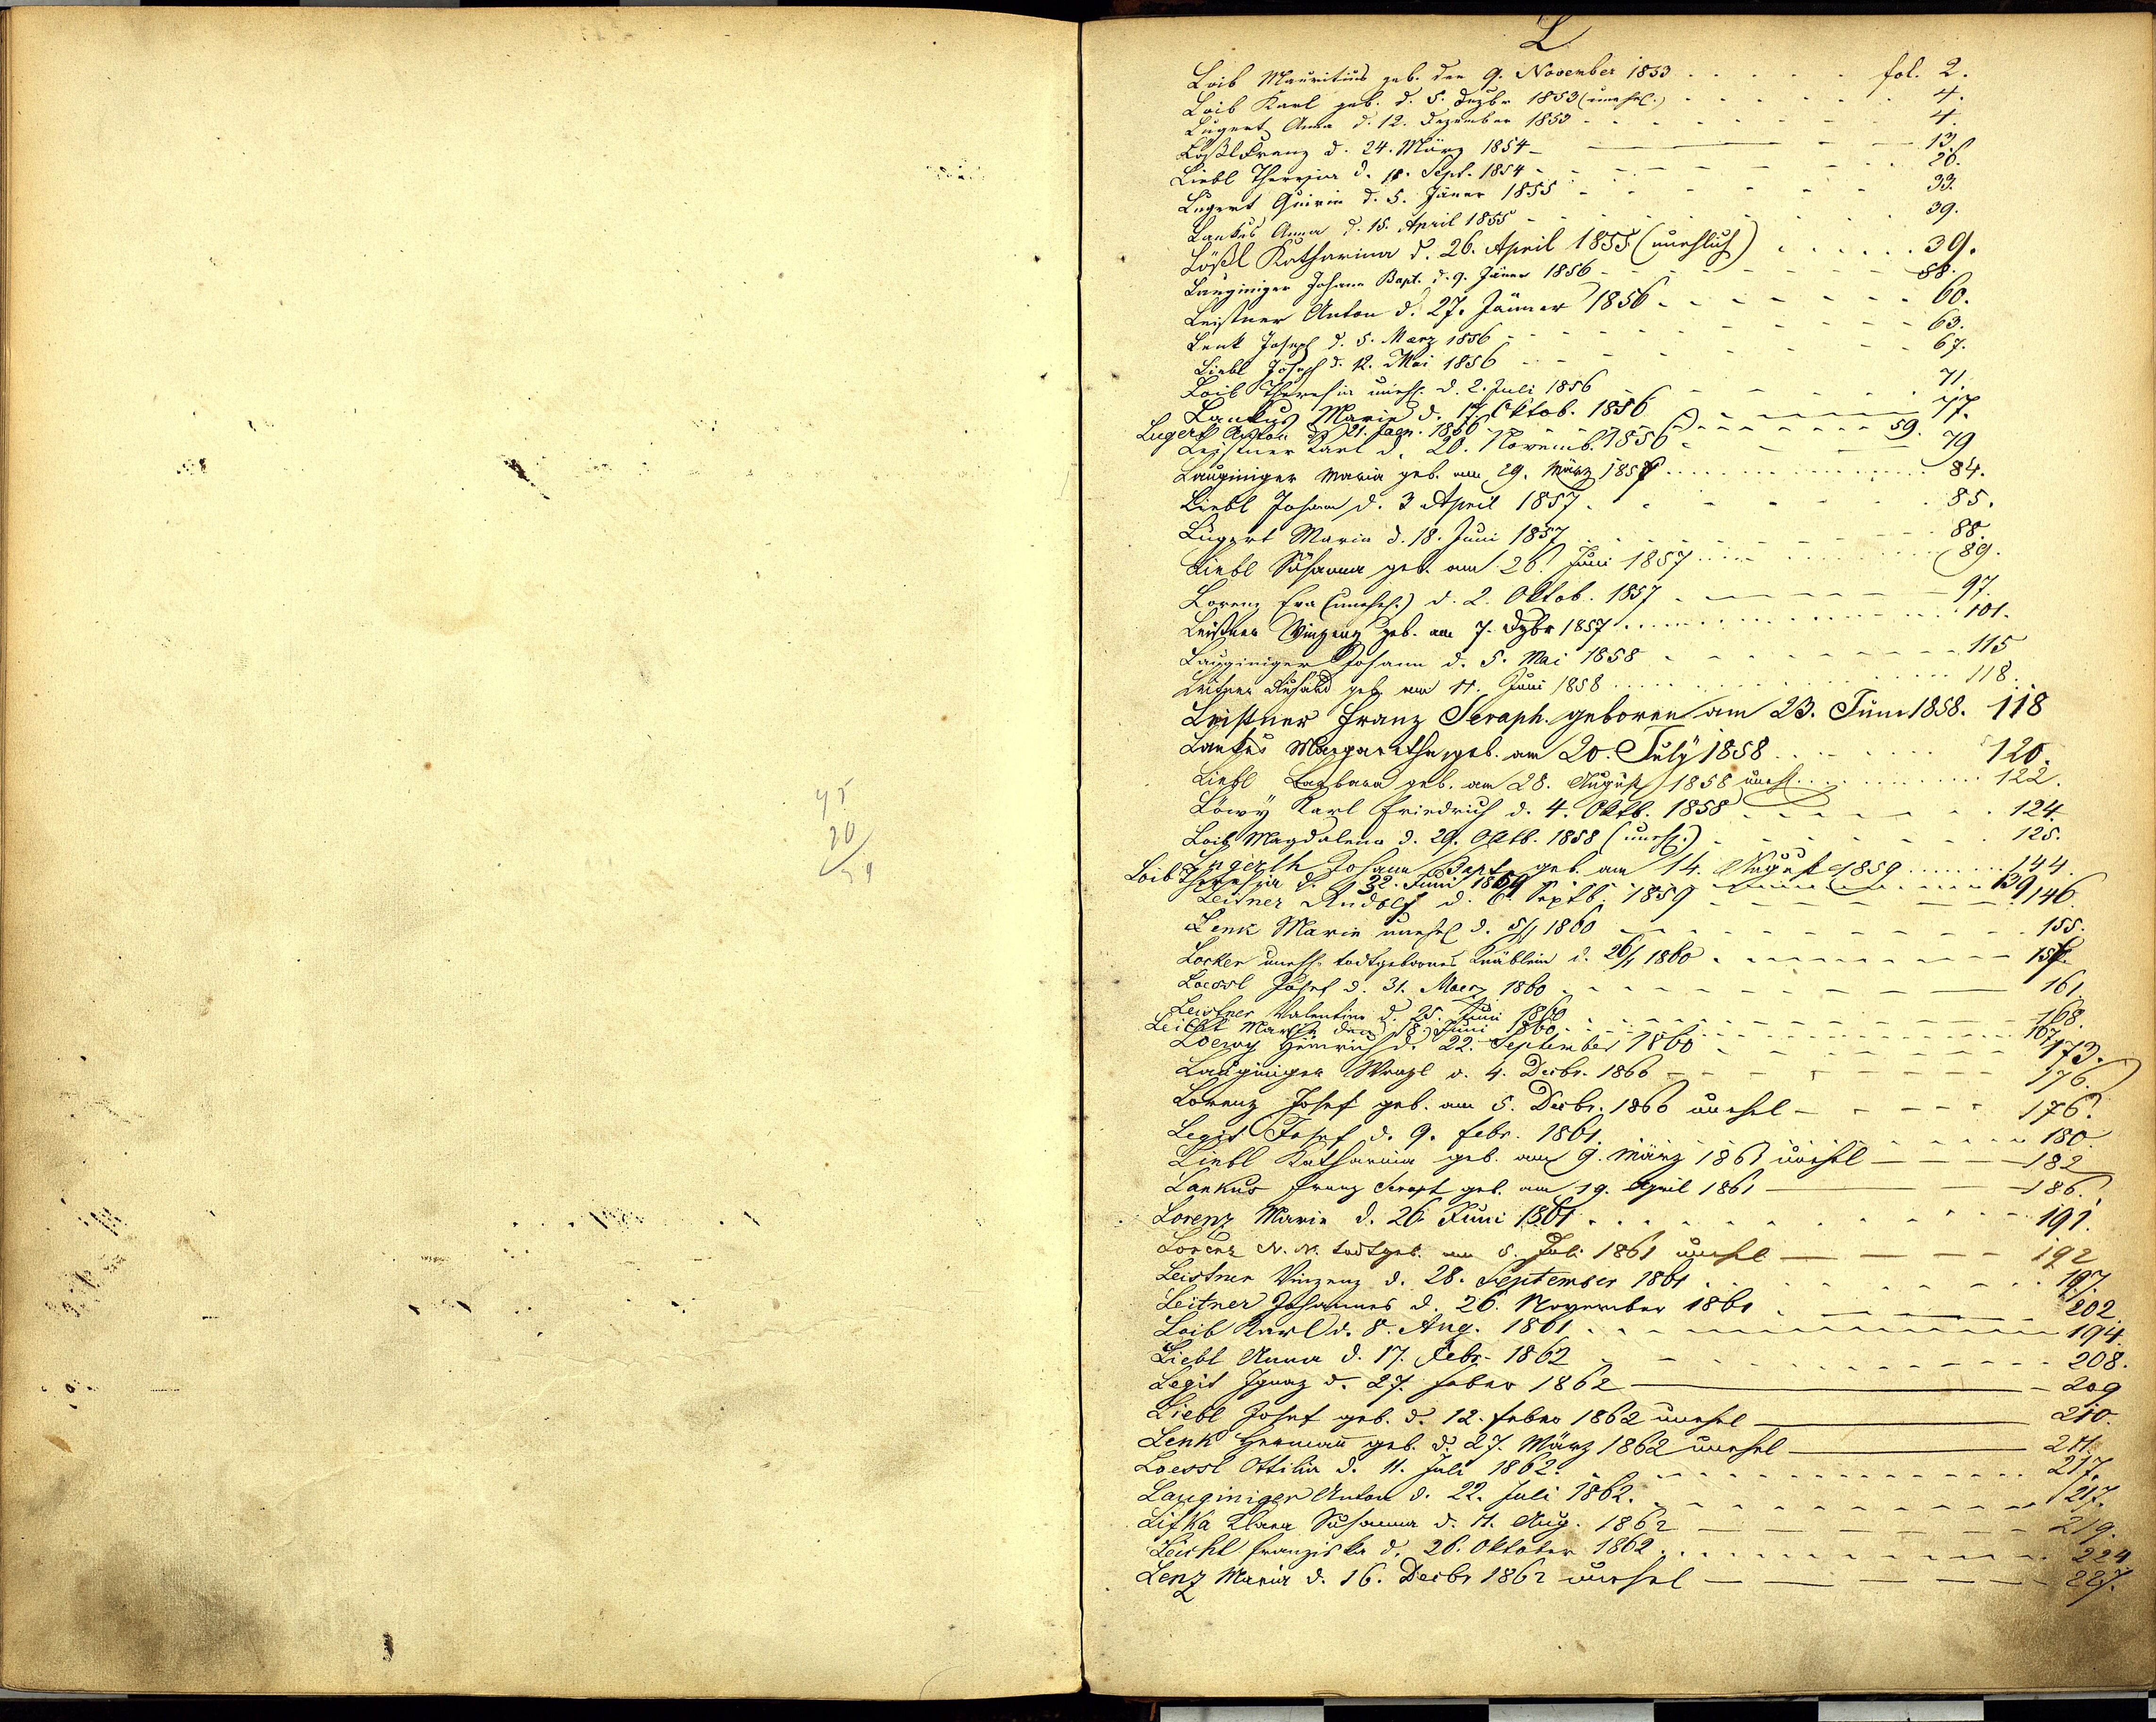 45
20
59
L
Loib Mauritius geb. den 9. November 1853 fol. 2.
Loib Karl geb. d. 5. Dezbr 1853 (unehel.) 4.
Lugert Anna d. 12. Dezember 1853 4.
Lößl Franz d. 24. März 1854 13.
Liebl Theresia d. 18. Sept. 1854 26.
Lugert Quirin d. 5. Jäner 1855 33.
Lankus Anna d. 15. April 1855 39.
Lößl Katharina d. 26. April 1855 (unehlich) 39.
Lauginiger Johann Bapt. d. 9. Jäner 1856 58.
Leistner Anton d. 27. Jänner 1856 60.
Lenk Joseph d. 5. März 1856 63.
Liebl Joseph d. 12. Mai 1856 67.
Loib Theresia unehl. d. 2. Juli 1856 71.
Lankus Maria d. 17. Oktob. 1856 77.
Lugert Anton d. 21. Jaen. 1856 59.
Leistner Karl d. 20. Novemb. 1856 79
Lauginiger Maria geb. am 29. März 1857 84.
Liebl Johann d. 3 April 1857 85.
Lugert Maria d. 18. Juni 1857 88.
Liebl Susanna geb. am 26. Juni 1857 89.
Lorenz Eva (unehel.) d. 2. Oktob. 1857 97.
Leistner Vinzenz geb. am 7. Dzbr 1857 101.
Lauginiger Johann d. 5. Mai 1858 115
Leitner geb. am 11. Juni 1858 118.
Leistner Franz Seraph. geboren am 23. Juni 1858. 118
Lankus Margaretha geb. am 20. July 1858 120.
Liebl Barbara geb. am 28. August 1858 unehl. 122.
Löwy Karl Friedrich d. 4. Oktb. 1858 124
Loib Magdalena d. 29. Oktb. 1858 (unehl.) 125.
Lugerth Johann Bapt. geb. am 14. August 1859 144.
Loib Theresia d. Juni 1859 139
Leitner Rudolf d. 6. Septb. 1859 146.
Lenk Marie unehel d. 5/1 1860 155.
Locker uneh. todtgebornes Knäblein d. 26/1 1860 157.
Loessl Josef d. 31. Maerz 1860 161
Leistner Valentin d. 25. Juni 1860 168.
Leicht Maria den 18. Juni 1860 167
Loewy Heinrich d. 22. September 1860 173.
Lauginiger Wenzl d. 4. Decbr. 1860 176.
Lorenz Josef geb. am 5. Decbr. 1860 unehel 176.
Legit Josef d. 9. Febr. 1861. 180
Liebl Katharina geb. am 9. März 1861 unehel 182
Lankus Franz Seraph geb. am 19. April 1861 186.
Lorenz Marie d. 26 Juni 1861 191.
Lorenz N. N. todtgeb. am 5. Juli 1861 unehel 192
Leistner Vinzenz d. 28. September 1861 197.
Leitner Johannes d. 26. November 1861 202
Loib Karl d. 8. Aug. 1861 194.
Liebl Anna d. 17. Febr. 1862 208.
Legit Ignaz d. 27. Feber 1862 209
Liebl Josef geb. d. 12. Feber 1862 unehel 210.
Lenk Hermann geb. d. 27. März 1862 unehel 211.
Loessl Ottilia d. 11. Juli 1862. 217.
Lauginiger Anton d. 22. Juli 1862. 217.
Lifka Klara Susanna d. 11. Aug. 1862 219.
Leicht Franziska d. 26. Oktober 1862 224
Lenz Maria d. 16. Decbr 1862 unehel 227.